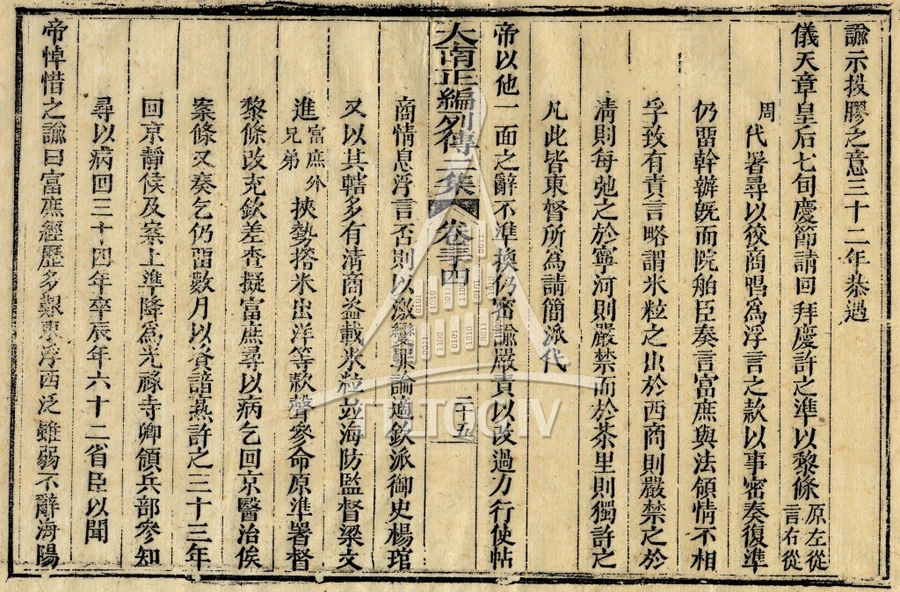 諭示投膠之意三十二年恭遇
儀天章皇后七旬慶節請回拜慶許之準以黎條原左從言右從
周代署尋以狡商唱為浮言之款以事密奏復準
仍留幹辦既而院舶臣奏言富庶與法領情不相
孚致有責言略謂米粒之出於西商則嚴禁之於
清則每弛之於寧河則嚴禁而於茶里則獨許之
凡此皆東督所為請簡派代
帝以他一面之辭不準換仍密諭嚴責以改過力行使帖
大南正編列傳二集 卷三十四 二十五
商情息浮言否則以激變罪論適欽派御史楊琯
又以其轄多有清商盜載米粒並海防監督梁文
進富庶外兄弟挾勢撘米出洋等款聲參命原準署督
黎條改充欽差查擬富庶尋以病乞回京醫治俟
案條又奏乞仍留數月以資諳熟許之三十三年
回京靜候及案上準降為光祿寺卿領兵部參知
尋以病回三十四年卒辰年六十二省臣以聞
帝悼惜之諭曰富庶經歷多艱東浮西泛雖弱不辭海陽
TTLTQGIV